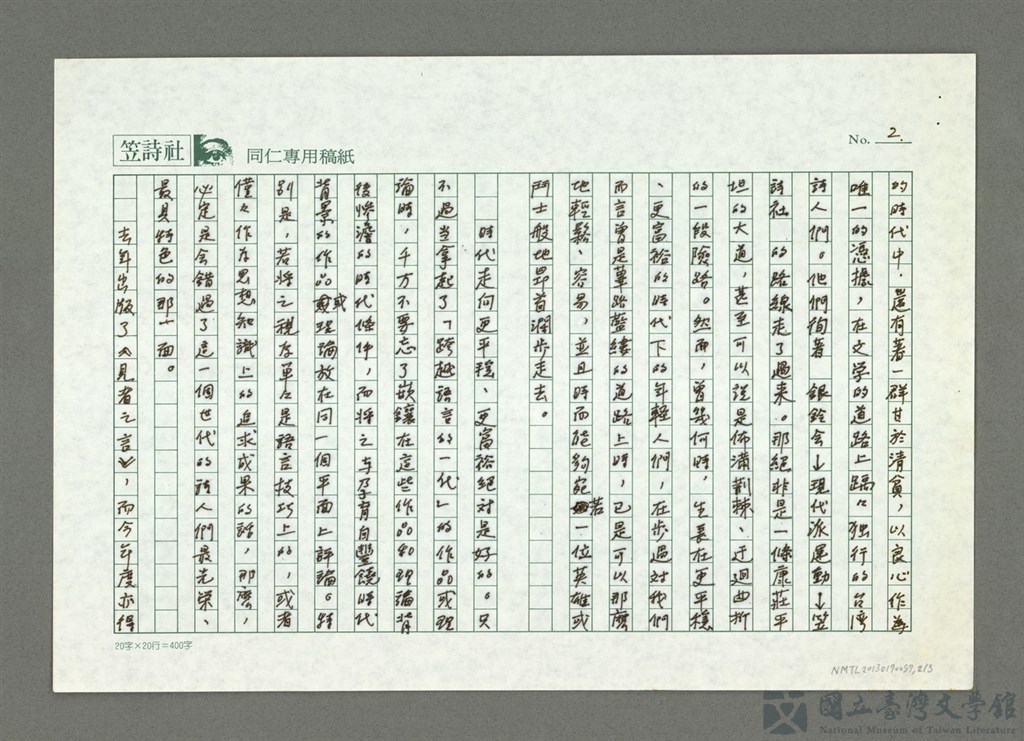 笠詩社 同仁專用稿紙
No. 2.
的時代中，還有著一群甘於清貧，以良心作為
唯一的憑據，在文学的道路上踽々独行的台湾
詩人們。他們徇著 銀鈴会→現代派運動→笠
詩社 的路線走了過来。那絕非是一條康莊平
坦的大道，甚至可以說是佈滿荆棘、迂廻曲折
的一段險路。然而，曾幾何時，生長在更平穩
、更富裕的時代下的年輕人們，在步過对我們
而言曾是蓽路藍縷的道路上時，已是可以那麼
地輕鬆、容易，並且時而能夠宛若一位英雄或
鬥士般地昂首濶步走去。
時代走向更平穩、更富裕絕对是好的。只
不過当拿起了「跨越語言的一代」的作品或理
論時，千方不要忘了嵌鑲在這些作品和理論背
後慘澹的時代條件，而將之与孕育自豐饒時代
背景的作品或理論放在同一個平面上評論。特
別是，若將之視為單々是語言技巧上的，或者
僅々作為思想知識上的追求成果的話，那麼，
必定是会錯過了這一個世代的詩人們最光榮、
最具特色的那一面。
去年出版了《見者之言》，而今年度亦得
20字×20行＝400字
NMTL20130190059,2/3
國立臺灣文學館
National Museum of Taiwan Literature